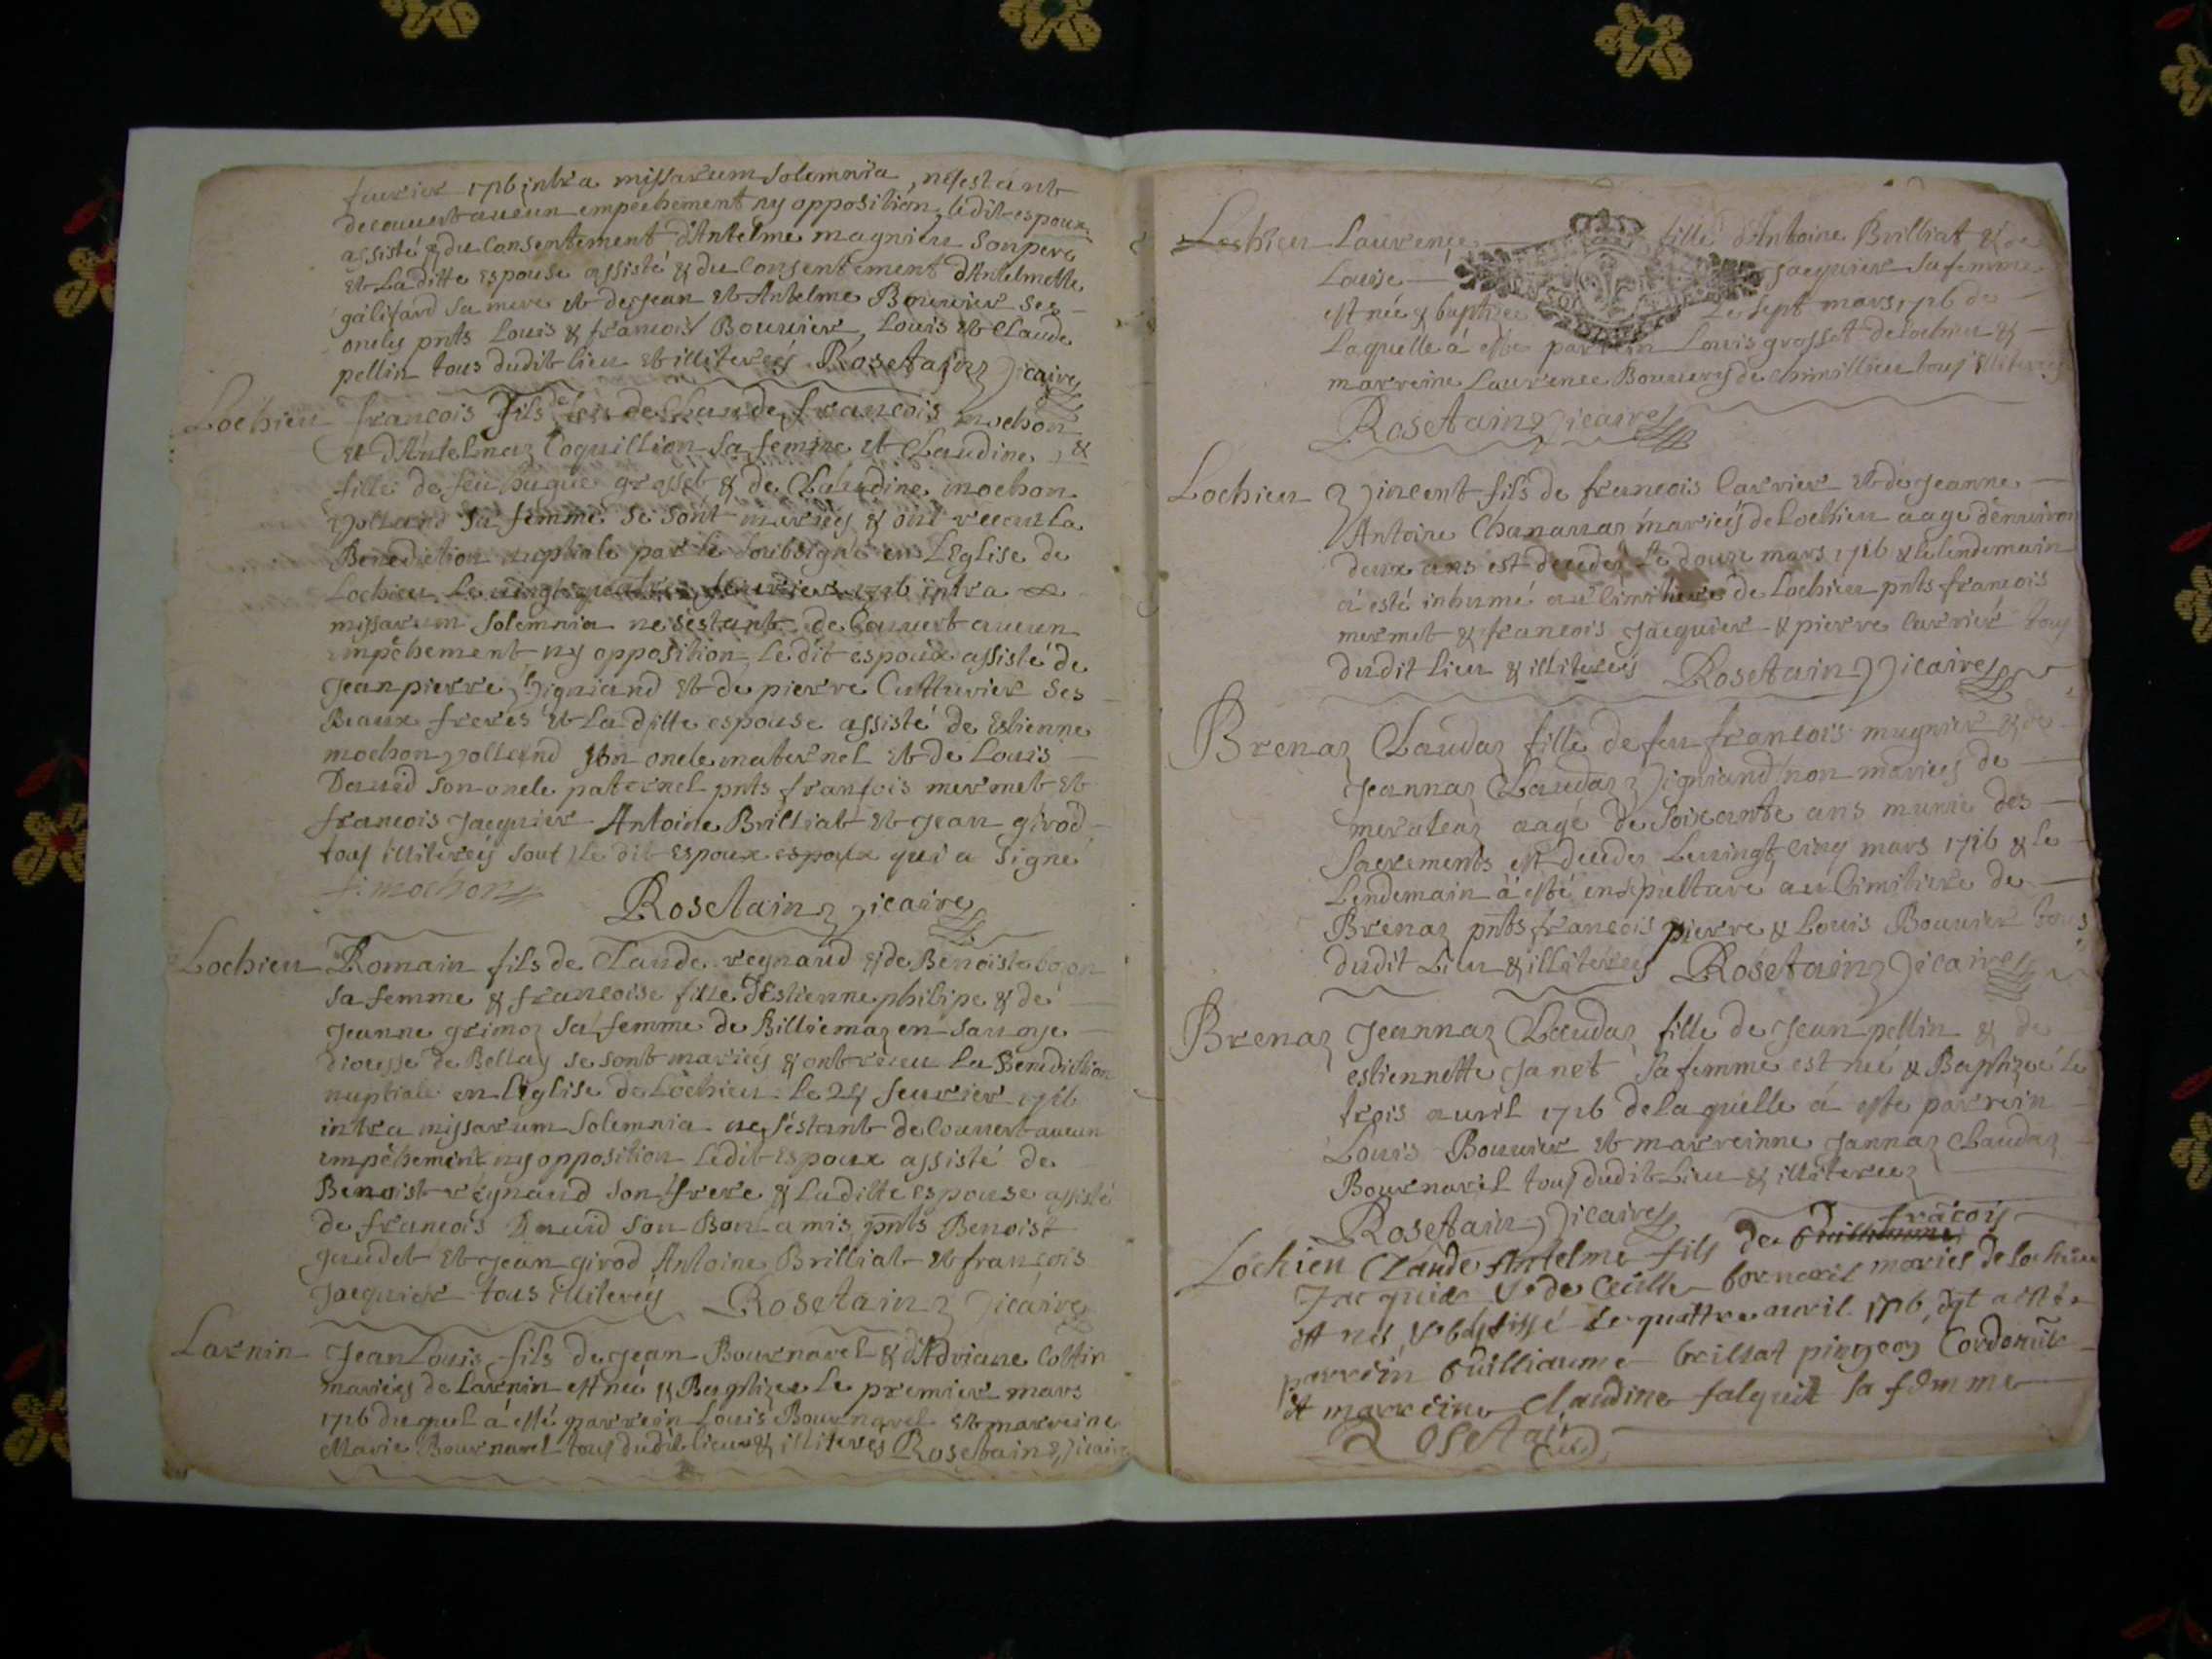 feurier 1716 intra missarum solemnia, nésestant
decouuert aucun empéchement ny opposition, ledit espoux
assisté & du consentement d'Antelme magnieu son pere
et Laditte espouse assisté & du consentement d'Antelmette
galifard sa mere et de Jean et Antelme Bouuier ses
oncles pnts Louis & francois Bouuier, Louis et Claude
pellin tous dudit lieu et illiterés Rosetain vicaire
Lochieu francois fils de Claude francois mochon
et d'Antelmaz Coquillion sa femme et Claudine &
fille de feu hugue grosset & de Claudine mochon
volland sa femme se sont mariés & ont receu la
Benediction nuptiale par le soubsigné en L'Eglise de
Lochieu Le uingtquatre feurier 1716 intra
missarum solemnia ne s'estant decouuert aucun
impêhement ny opposition, Ledit espoux assisté de
Jeanpierre vigniand et de pierre Cutturier ses
Beaux freres et La ditte espouse assisté de Estienne
mochon volland son oncle maternel et de Louis
Dauid son oncle paternel pnts francois mermet et
francois Jacquier Antoine Brilliat et Jean girod
tous illiterés sauf Le dit Espoux espoux qui a signé
f. mochon
Rosetain vicaire
Lochieu Romain fils de Claude regnaud & de Benoiste
sa femme & francoise fille d'Estienne philipe & de
Jeanne grimoz sa femme de Billiemaz en sauoye
diocesse de Bellay se sont mariés & ont receu La Benediction
nuptiale en l'eglise de Lochieu le 24 feurier 1716
intra missarum solemnia ne s'éstant decouuert aucun
empêhement ny opposition Ledit Espoux assisté de
Benoist regnaud son frere & Laditte espouse assisté
de francois Dauid son Bon amis pnts Benoist
gaudet et Jean girod Antoine Brilliat et francois
Jacquier tous illiterés Rosetain vicaire
Larnin Jean Louis fils de Jean Bournarel & d'Adriane Cottin
mariés de Larnin est né & Baptizee Le premier mars
1716 duquel á esté parrein Louis Bournarel et marreine
Marie Bournarel tous dudit lieu & illiterés Rosetain vicaire
Lochieu Laurence fille d'Antoine Brilliat & de
Louise Jacquier sa femme
est née & baptizee Le sept mars 1716 de
Laquelle á esté parrein Louis grosset de Lochieu &
marreine Laurence Bouuery de chimillieu tous illiterés
Rosetain vicaire
Lochieu vincent fils de francois Carrier et de Jeanne
Antoine Chanauaz mariés de Lochieu aage d'enuiron
deux ans est decedes Le douze mars 1716 & le lendemain
á esté inhumé au Cimitiere de Lochieu pnts francois
mermet & francois Jacquier & pierre Carrier tous
dudit lieu & illiterés Rosetain vicaire
Brenaz Claudaz fille de feu francois mugnier & de
Jeannaz Claudaz vigniand non mariés de
meraleaz aagé de soixante ans munie des
sacrements est decedes Le uingt cinq mars 1716 & le
Lendemain á esté ensepulturé au Cimitiere de
Brenaz pnts francois pierre & Louis Bouuier tous
dudit Lieu & illiterés Rosetain vicaire
Brenaz Jeannaz Claudaz fille de Jean pellin & de
estiennette Janet sa femme est née & Baptizeé le
trois auril 1716 de laquelle á este parrein
Louis Bouuier et marreinne Jannaz Claudaz
Bournaril tous dudit Lieu & illiterez
Rosetain vicaire
fracois
Lochieu Claude Antelme fils de Guilliaume
Jacquier & de Cecille bornaril maries de lochieu
est nes & babtissé le quattre auril 1716, dqt a esté
parrein Guilliaume brilliat pingeon Cordonnié
et marreine Claudine falquet sa femme
Rosetain